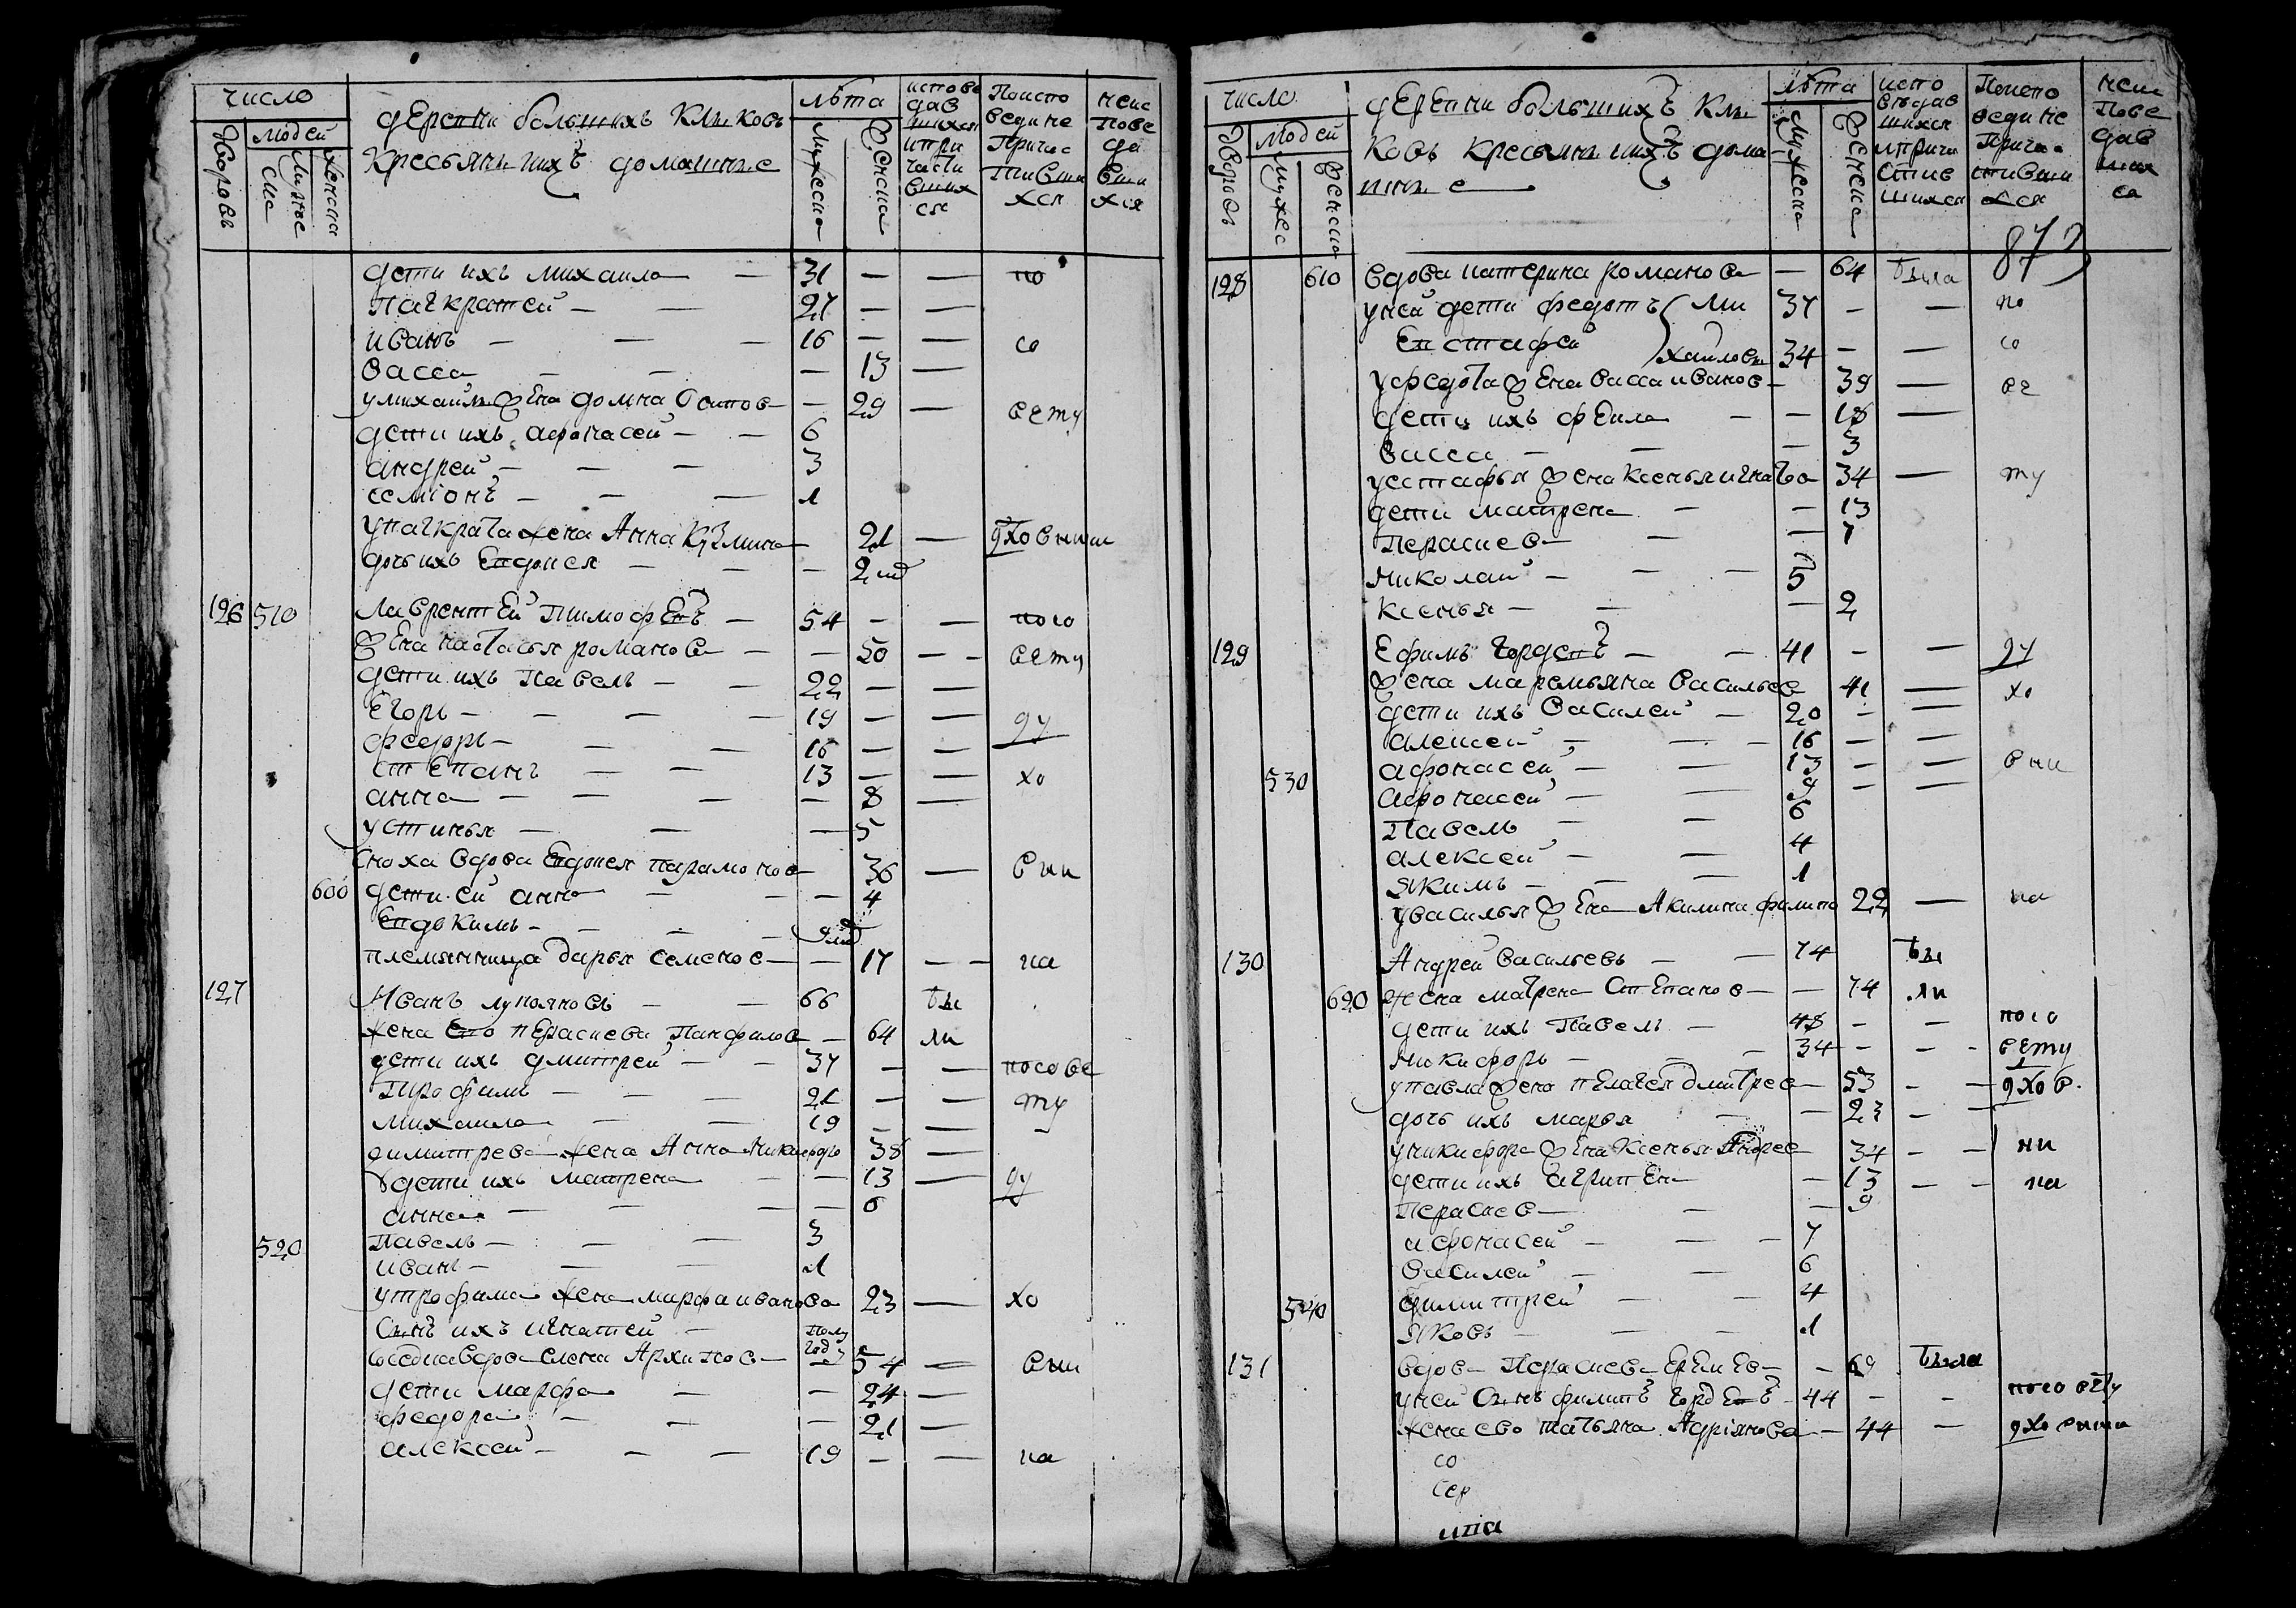 число
людей
дворовъ
мужес
ска
женска
деревни большихъ Клыковъ
Крестьяни ихъ домашные
лѣта
мужеска
женска
испове
дав
шихся
ипри
часты
вших
ся
Поиспо
ведине
Причас
тивши
хся
неис
пове
да
вши
хся
дети ихъ михаила — 31 — — по
Панкратей — — 27 — —
иванъ — — — 16 — — со
васса — — — 13 —
у михаила жена домна Осипов — 29 — вету
дети ихъ афонасей — — 6
андрей — — — 3
семионъ — — — 1
у панкрата жена Анна Кузмина 21 — дховныи
дочь ихъ Евдокея — — — 2
126 510 Лаврентей Тимофевъ — 54 — — посо
жена настасья романова — — 50 — — вету
дети ихъ Павелъ — — 22 — —
Егоръ — — — — 19 — — ду
федоръ — — — 16 — —
степанъ — — 13 — — хо
анна — — — — 8 —
устинья — — — 5
сноха вдова Евдокея парамонов 36 — вни
600 дети ей анна — — — 4
Евдокимъ — — — —
племянница дарья семенов — — 17 — — ка
127 Иванъ лупояновъ — — 66 бы
жена Ево перасиева Панфилов — 64 ли
дети ихъ дмитрей — — 37 — — посове
Трофимъ — — — 21 — — ту
михаила — — — 19 — —
димитрева жена Анна Никифоро 38 —
дети ихъ матрена — — 13 — ду
анна — — — — 6
520 Павелъ — — — 3
иванъ — — — 1
у трофима жена марфа иванова 23 — хо
Сынъ ихъ игнатей — Полу
год
вдова елена Архипов — — 54 — вни
дети марфа — — 24 —
федора — — — 21 —
алексей — — — 19 — — ка
число
людей
дворовъ
мужес
женско
деревни большихъ Клы
ковъ крестьяни ихъ дома
шны е
лѣта
мужеска
женска
испо
ведав
шихся
иприча
стив
шихся
Поиспо
ведине
Прича
стивши
хся
неис
Пове
дав
ших
ся
873
128 610 вдова катерина романова — 64 была
у ней дети федотъ ми 37 — — по
Евстафей хайловы 34 — — со
у федота жена васса иванов — 39 — ве
дети ихъ фекла — — 18 —
васса — — — 3
у естафья жена ксенья игнатьва 34 — ту
дети матрена — — 13
Перасиев — — — 7
николай — — — 5
ксенья — — — 2
129 Ефимъ гордевъ — — 41 — — ду
жена маремьяна васильев 41 — хо
дети ихъ василей — 20 — —
алексей — — — 16 — —
530 афонасей — — 13 — — вни
афонасей — — 9 — —
Павелъ — — 6
алексей — — 4
якимъ — — — 1
у василья жена Акилина филипо 22 — ка
130 Андрей васильевъ — — 74 бы
620 жена матрена Степанов — — 74 ли
дети ихъ Павелъ — 48 — — посо
никифоръ — — — 34 — — вету
у павла жена пелагея дмитрев — 53 — — дхов
дочь ихъ марья — — 23 — —
у никифора жена Ксенья Андрее 34 — — ни
дети ихъ агрипена — 13 — — ка
Перасиев — — — 9
афонасей — — — 7
василей — — 6
540 димитрей — — 4
яковъ — — — 1
131 вдова Перасиева Еремеев — — 69 была
у ней Сынъ филипъ гордевъ — 44 — — посовету
жена ево татьяна Адріянова — 44 — дховныи
со
сер
ипа